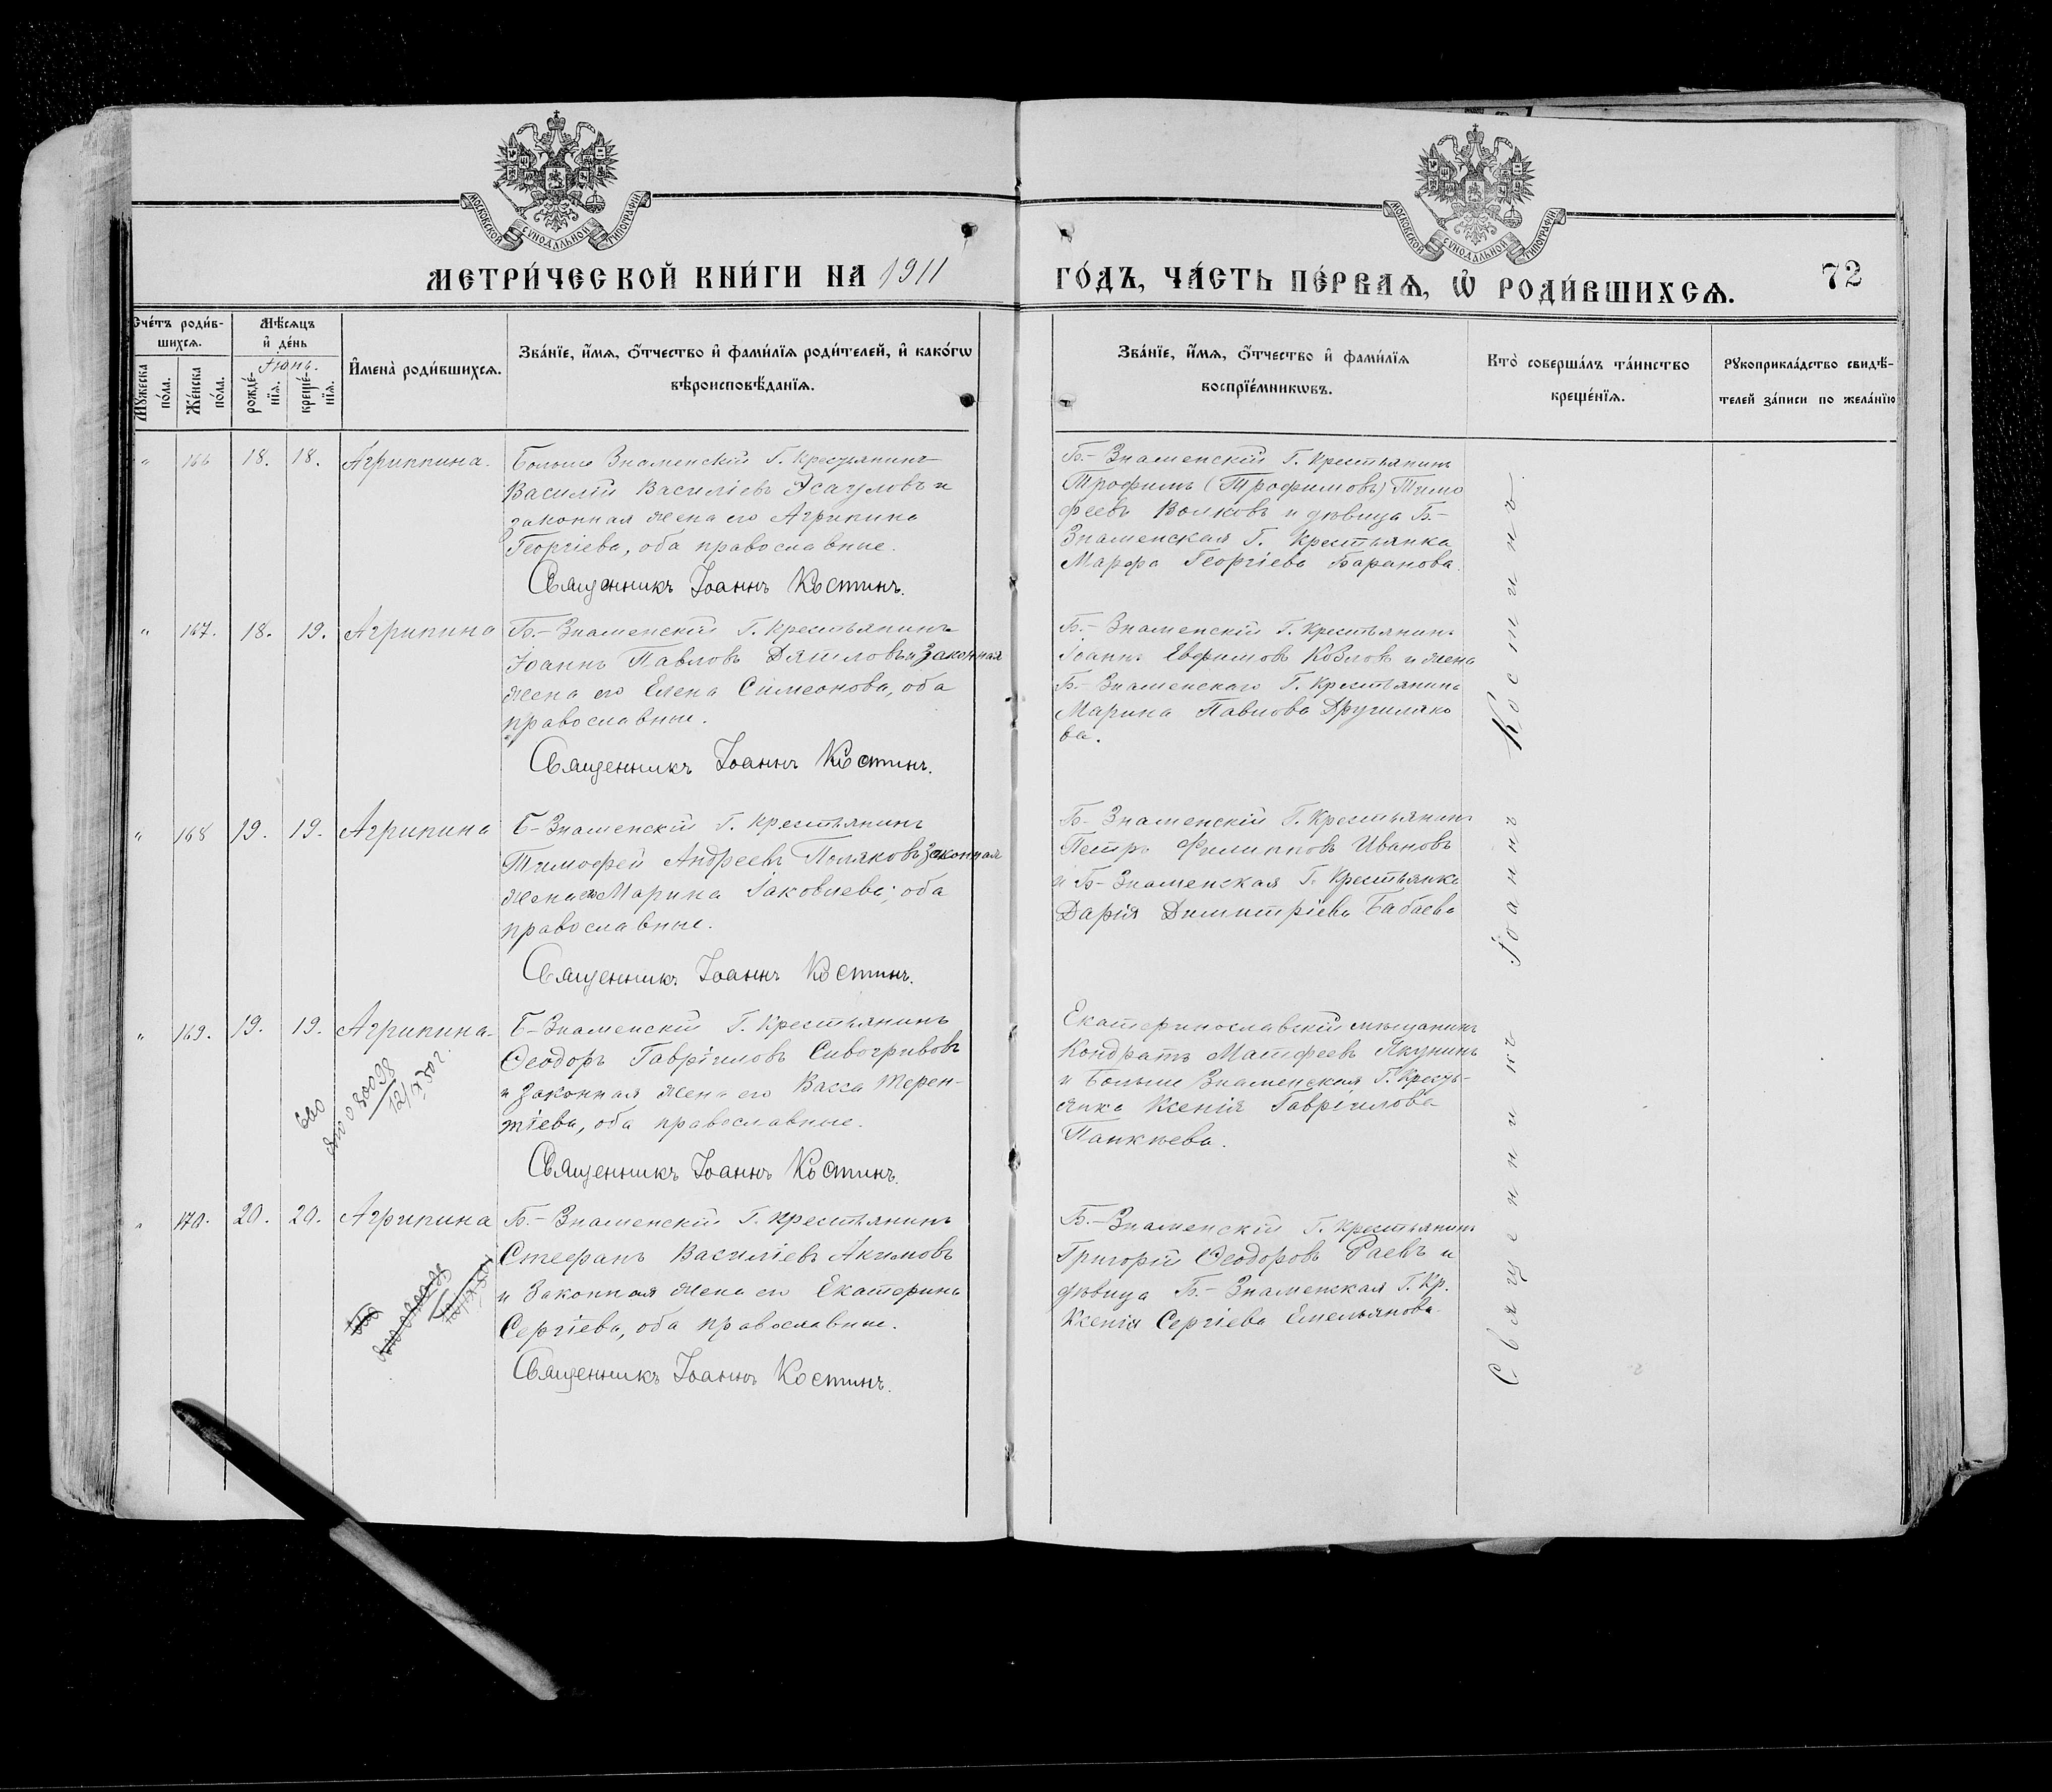 МОСКОВСКОЙ СѴНОДАЛЬНОЙ ТИПОГРАФІИ
МОСКОВСКОЙ СѴНОДАЛЬНОЙ ТИПОГРАФІИ
МЕТРИ́ЧЕСКОЙ КНИ́ГИ НА 1911
ГО́ДЪ, ЧА́СТЬ ПЕ́РВАѦ, Ѿ РОДИ́ВШИХСѦ.
72
Сче́тъ роди́в-
шихсѧ.
Мꙋжеска по́ла.
Же́нска по́ла.
Мѣ́сѧцъ
и҆ де́нь
Іюнь.
рожде́-
нїѧ.
креще́-
нїѧ.
И҆мена̀ роди́вшихсѧ.
Зва́нїе, и҆́мѧ, ѻ҆́тчество и҆ фами́лїѧ роди́телей, и҆ како́гѡ
вѣроисповѣ́данїѧ.
Зва́нїе, и҆́мѧ, ѻ҆́тчество и҆ фами́лїѧ
воспрїе́мникѡвъ.
Кто̀ соверша́лъ та́инство
креще́нїѧ.
Рꙋкоприкла́дство свидѣ́-
телей за́писи по жела́нїю
" 166 18. 18. Агриппина.
Больше Знаменскій Г. Крестьянинъ
Василій Василіевъ Эсауловъ и
законная жена его Агрипина
Георгіева, оба православные.
Священникъ Іоаннъ Костинъ.
Б.- Знаменскій Г. Крестьянинъ
Трофимъ (Трофимовъ) Тимо
феевъ Волковъ и дѣвица Б.-
Знаменская Г. Крестьянка
Марфа Георгіева Баранова.
" 167. 18. 19. Агрипина
Б.- Знаменскій Г. Крестьянинъ
Іоаннъ Павловъ Дятловъ и законная
жена его Елена Симеонова, оба
православные.
Священникъ Іоаннъ Костинъ.
Б.- Знаменскій Г. Крестьянинъ
Іоаннъ Евфимовъ Козловъ и жена
Б.- Знаменскаго Г. Крестьянина
Марина Павлова
ва.
" 168 19. 19. Агрипина
Б- Знаменскій Г. Крестьянинъ
Тимофей Андреевъ Поляковъ законная
жена его Марина Іаковлева; оба
православные.
Священникъ Іоаннъ Костинъ.
Б- Знаменскій Г. Крестьянинъ
Петръ Филипповъ Ивановъ
и Б- Знаменская Г. Крестьянка
Дарія Димитріева Бабаева
" 169. 19. 19. Агрипина.
Б- Знаменскій Г. Крестьянинъ
Ѳеодоръ Гавріиловъ Сивогривовъ
и законная жена его Васса Терен-
тіева, оба православные.
Священникъ Іоаннъ Костинъ.
Екатеринославскій мѣщанинъ
Кондратъ Матфеевъ Якунинъ
и Больше Знаменская Г. Кресть-
янка Ксенія Гавріилова
" 170. 20. 20. Агрипина
Б.- Знаменскій Г. Крестьянинъ
Стефанъ Василіевъ Акимовъ
и Законная жена его Екатерина
Сергіева, оба православные.
Священникъ Іоаннъ Костинъ.
Б.- Знаменскій Г. Крестьянинъ
Григорій Ѳеодоровъ Раевъ и
дѣвица Б.- Знаменская Г. Кр.
Ксенія Сергіева Емельянова.
Священникъ Іоаннъ Костинъ